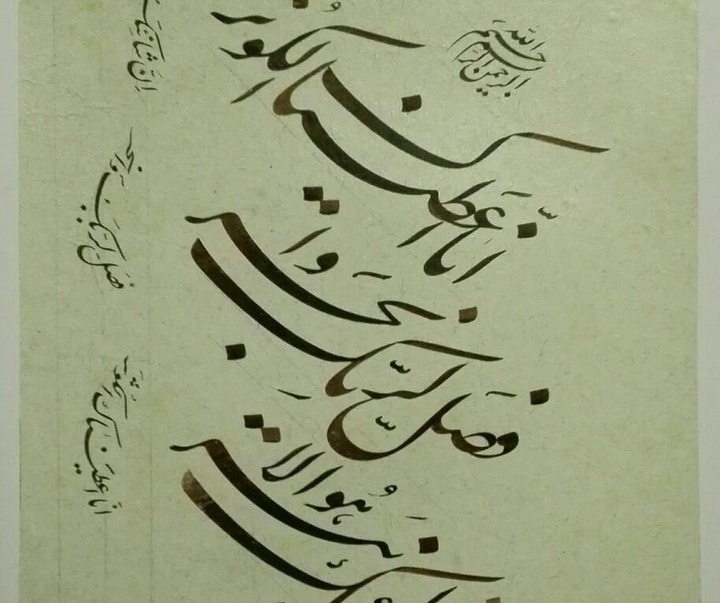 بسم الله الرحمن الرحیم
انا اعطیناک الکوثر
فصل لربک وانحر
ان شانئک هو الابتر
انا اعطیناک الکوثر
فصل لربک وانحر
ان شانئک